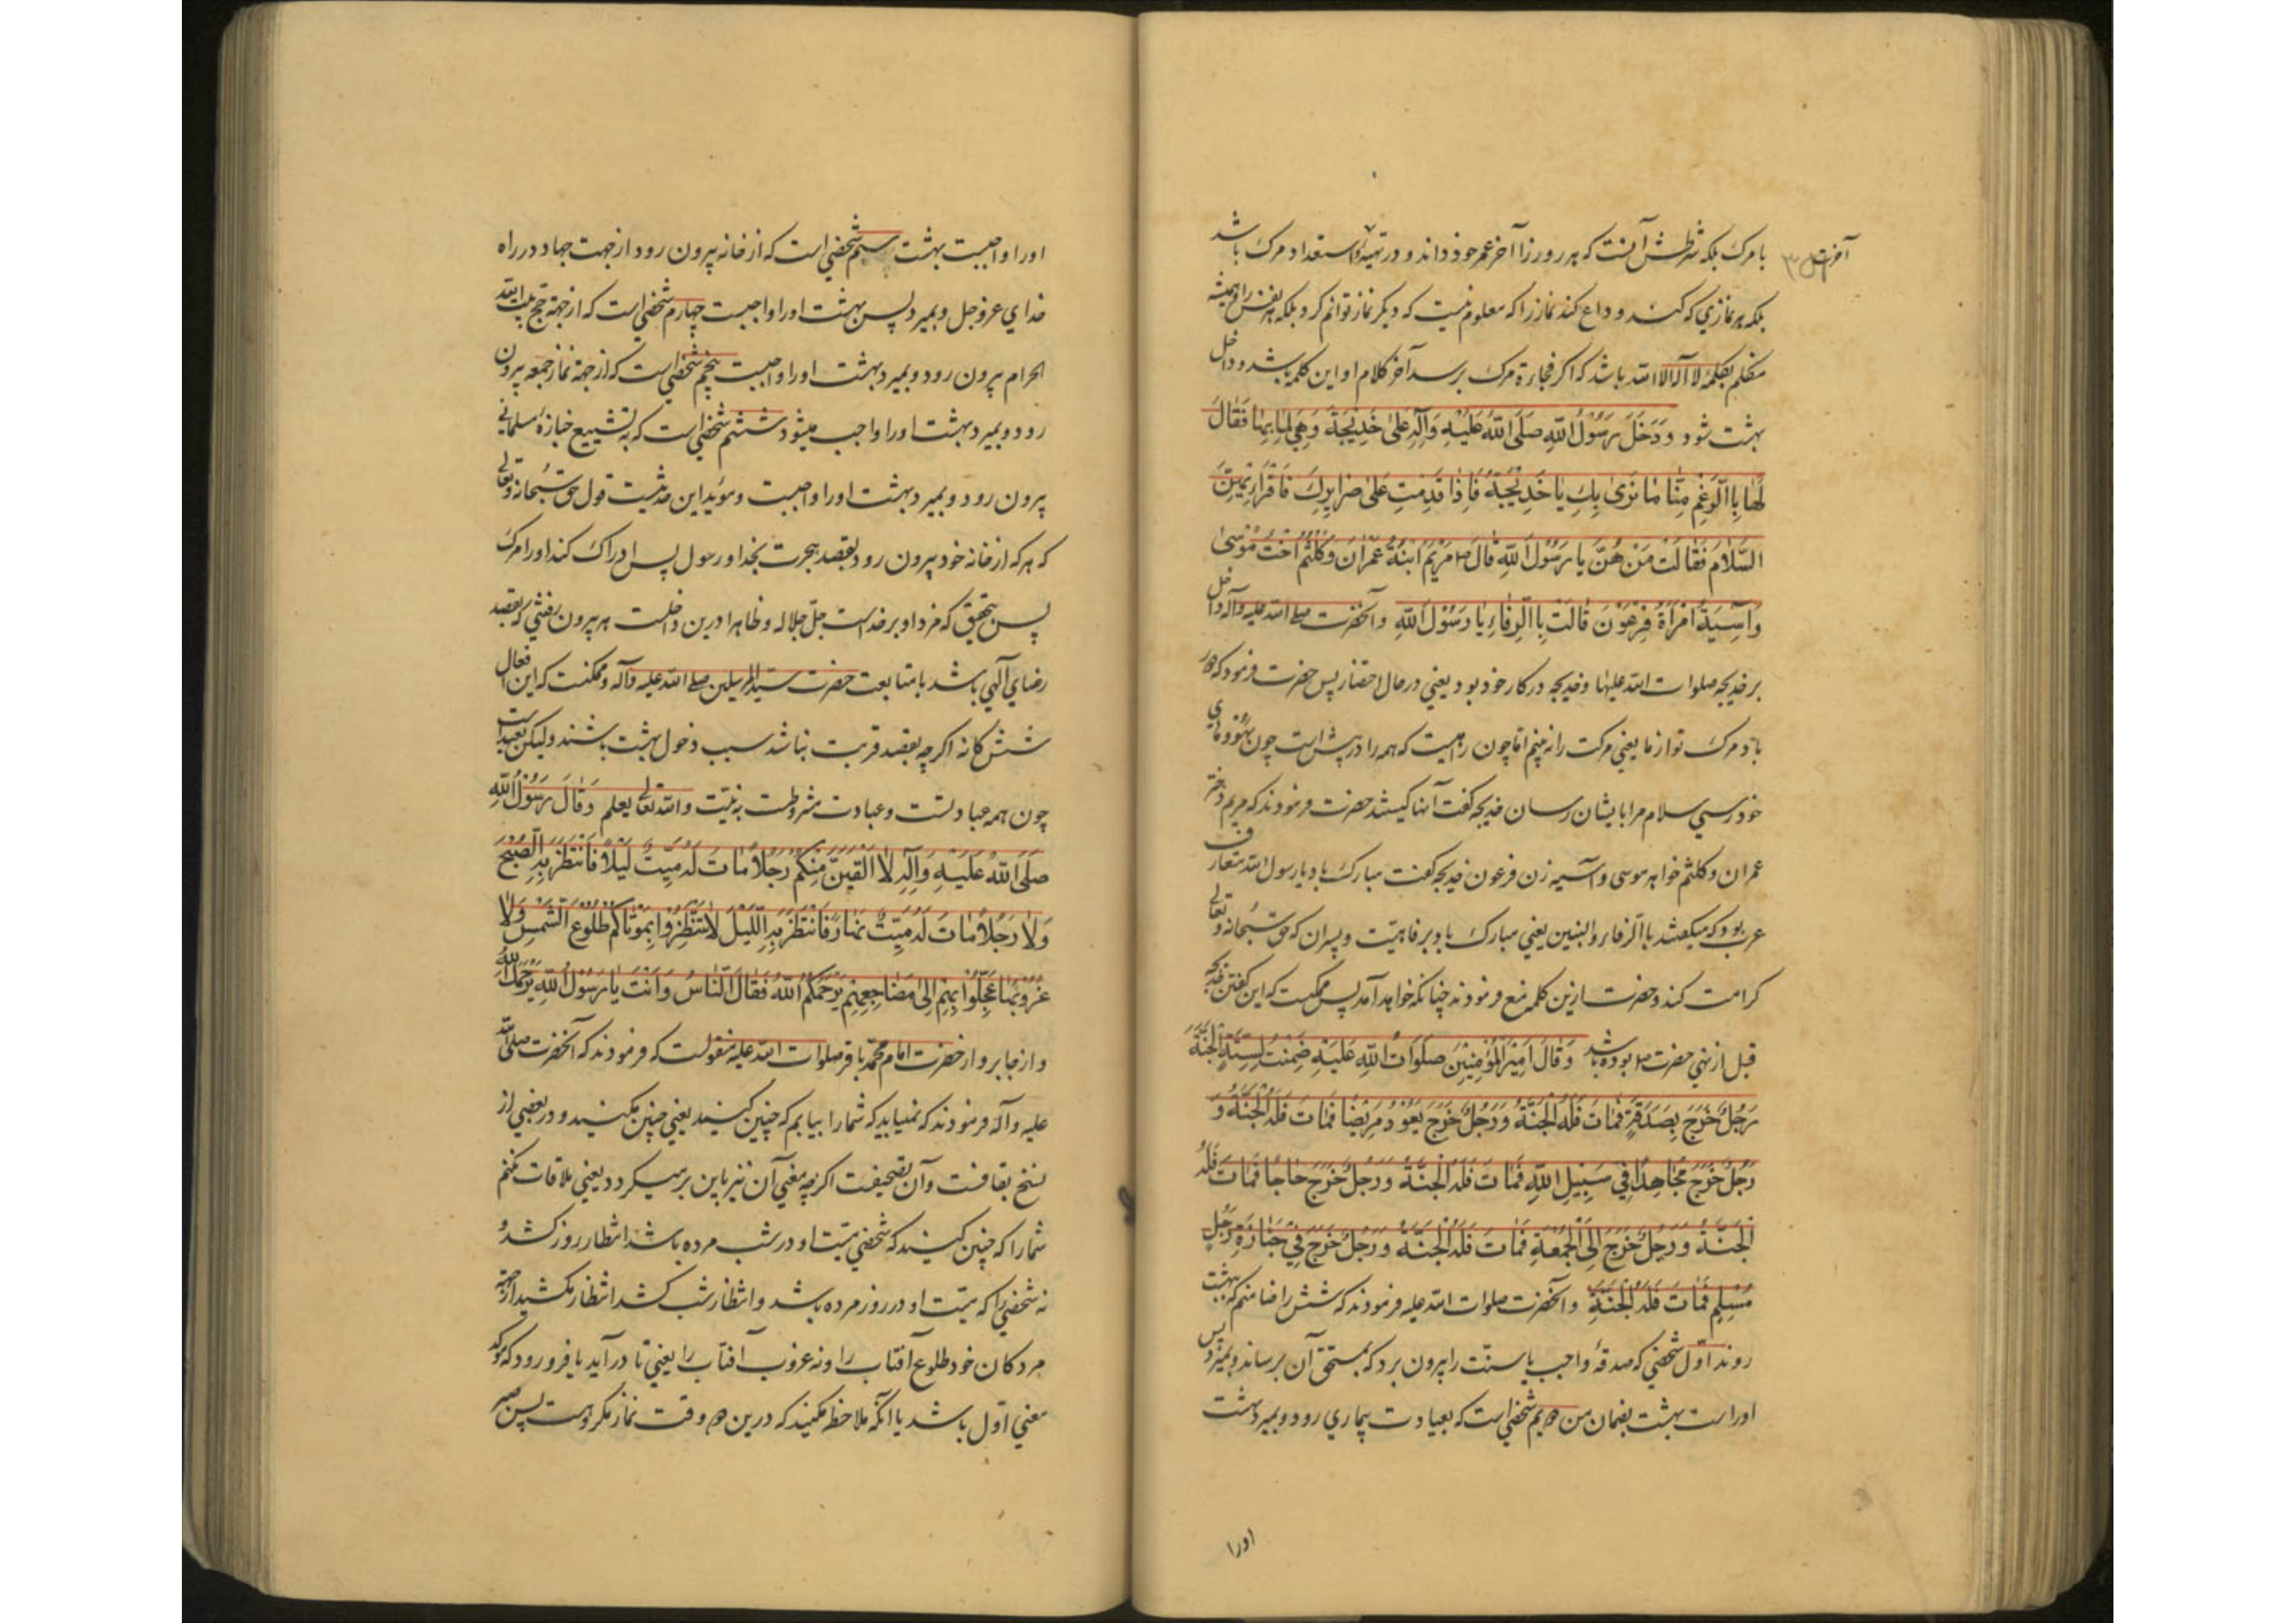 با مرک بلکه شرطش آنست که هر روز را آخر عمر خود داند و در تهیهٔ و استعداد مرک باشد
آخرت
بلکه هر نمازی که کند وداع کند نماز را که معلوم نیست که دیکر نماز توانم کرد بلکه هر نفس را همیشه
متکلم بکلمهٔ لا اله الا الله باشد که اکر فجاءة مرک برسد آخر کلام او این کلمه باشد و داخل
بهشت شود وَدَخَلَ رَسُوْلُ اللّٰهِ صَلَّى اللّٰهُ عَلَيْهِ وَآلِهِ عَلىٰ خَدِيْجَةَ وَهِيَ لِمٰا بِهٰا فَقٰالَ
لَهٰا بِاالرَّغْمِ مِنّٰا مٰا نَرىٰ بِكِ يٰا خَدِيْجَةُ فَاِذٰا قَدِمْتِ عَلىٰ ضَرٰايِرِكِ فَاقْرَاءِيْهِنَّ
السَّلاٰمَ فَقٰالَتْ مَنْ هُنَّ يٰا رَسُوْلَ اللّٰهِ قٰالَ ص مَرْيَمُ ابْنَةُ عِمْرٰانَ وَكُلْثُمُ اُخْتُ مُوْسىٰ
وَآسِيَةُ امْرَاَةُ فِرْعَوْنَ قٰالَتْ بِاالرِّفٰاءِ يٰا رَسُوْلَ اللّٰهِ و آنحضرت صلی الله علیه وآله داخل
بر خدیجه صلوات الله علیها و خدیجه در کار خود بود یعنی در حال احتضار پس حضرت فرمود که
باد مرک تو از ما یعنی مرکت را نمیخواهم اما چون راهیست که همه را در پیش است چون
خود رسی سلام مرا بایشان رسان خدیجه کفت آنها کیستند حضرت فرمودند که مریم دختر
عمران و کلثم خواهر موسی و آسیه زن فرعون خدیجه کفت مبارک باد یا رسول الله متعارف
عرب بود که میکفتند باالرفاء والبنین یعنی مبارک باد برفاهیّت و پسران که حق سبحانه و تعالی
کرامت کند و حضرت ازین کلمه منع فرمودند چنانکه خواهد آمد پس ممکنست که این کفتن خدیجه
قبل از نهی حضرت ص بوده باشد وَقٰالَ اَمِيْرُ الْمُؤْمِنِيْنَ صَلَوٰاتُ اللّٰهِ عَلَيْهِ ضَمِنْتُ لِسِتَّةٍ الْجَنَّةَ
رَجُلٌ خَرَجَ بِصَدَقَةٍ فَمٰاتَ فَلَهُ الْجَنَّةُ وَرَجُلٌ خَرَجَ يَعُوْدُ مَرِيْضًا فَمٰاتَ فَلَهُ الْجَنَّةُ وَ
رَجُلٌ خَرَجَ مُجٰاهِدًا فِي سَبِيْلِ اللّٰهِ فَمٰاتَ فَلَهُ الْجَنَّةُ وَرَجُلٌ خَرَجَ حٰاجًّا فَمٰاتَ فَلَهُ
الْجَنَّةُ وَرَجُلٌ خَرَجَ اِلَى الْجُمُعَةِ فَمٰاتَ فَلَهُ الْجَنَّةُ وَرَجُلٌ خَرَجَ فِيْ جَنٰازَةِ رَجُلٍ
مُسْلِمٍ فَمٰاتَ فَلَهُ الْجَنَّةُ و آنحضرت صلوات الله علیه فرمودند که شش را ضامنم که بهشت
روند اوّل شخصی که صدقهٔ واجب یا سنّت را بیرون برد که بمستحقّ آن برساند و بمیرد پس
اوراست بهشت بضمان من دویم شخصی است که بعیادت بیماری رود و بمیرد بهشت
اورا
اورا واجبست بهشت سیم شخصی است که از خانه بیرون رود از جهت جهاد در راه
خدای عزوجل و بمیرد پس بهشت اورا واجبست چهارم شخصی است که از جهة حج بیت الله
الحرام بیرون رود و بمیرد بهشت اورا واجبست پنجم شخصی است که از جهة نماز جمعه بیرون
رود و بمیرد بهشت اورا واجب میشود ششم شخصی است که به تشییع جنازهٔ مسلمانی
بیرون رود و بمیرد بهشت اورا واجبست و مؤید این حدیثست قول حق سبحانه و تعالی
که هر که از خانه خود بیرون رود بقصد هجرت بخدا و رسول پس ادراک کند اورا مرک
پس بتحقیق که مزد او بر خداست جلّ جلاله و ظاهرا درین داخلست هر بیرون رفتنی که بقصد
رضای الهی باشد با متابعت حضرت سیّد المرسلین صلی الله علیه وآله و ممکنست که این افعال
شش کانه اکرچه بقصد قربت نباشد سبب دخول بهشت باشند و لیکن بعید است
چون همه عبادتست و عبادت مشروطست به نیّت والله تعالی یعلم وَقٰالَ رَسُوْلُ اللّٰهِ
صَلَّى اللّٰهُ عَلَيْهِ وَآلِهِ لاٰ اُلْقِيَنَّ مِنْكُمْ رَجُلاً مٰاتَ لَهُ مَيِّتٌ لَيْلاً فَانْتَظَرَ بِهِ الصُّبْحَ
وَلاٰ رَجُلاً مٰاتَ لَهُ مَيِّتٌ نَهٰارًا فَانْتَظَرَ بِهِ اللَّيْلَ لاٰ تَنْتَظِرُوْا بِمَوْتٰاكُمْ طُلُوْعَ الشَّمْسِ وَلاٰ
غُرُوْبَهٰا عَجِّلُوْا بِهِمْ اِلىٰ مَضٰاجِعِهِمْ يَرْحَمْكُمُ اللّٰهُ فَقٰالَ النّٰاسُ وَاَنْتَ يٰا رَسُوْلَ اللّٰهِ يَرْحَمُكَ اللّٰهُ
و از جابر و از حضرت امام محمّد باقر صلوات الله علیه منقولست که فرمودند که آنحضرت صلی الله
علیه وآله فرمودند که نمیباید که شما را بیابم که چنین کنید یعنی چنین مکنید و در بعضی از
نسخ بقافست و آن تصحیفست اکرچه معنی آن نیز باین بر میکردد یعنی ملاقات نکنم
شما را که چنین کنید که شخصی میّت او در شب مرده باشد انتظار روز کشد و
نه شخصی را که میّت او در روز مرده باشد و انتظار شب کشد انتظار مکشید از جهة
مردکان خود طلوع آفتاب را و نه غروب آفتاب را یعنی تا در آید یا فرو رود که مؤکد
معنی اوّل باشد یا آنکه ملاحظه مکنید که درین دو وقت نماز مکروهست پس